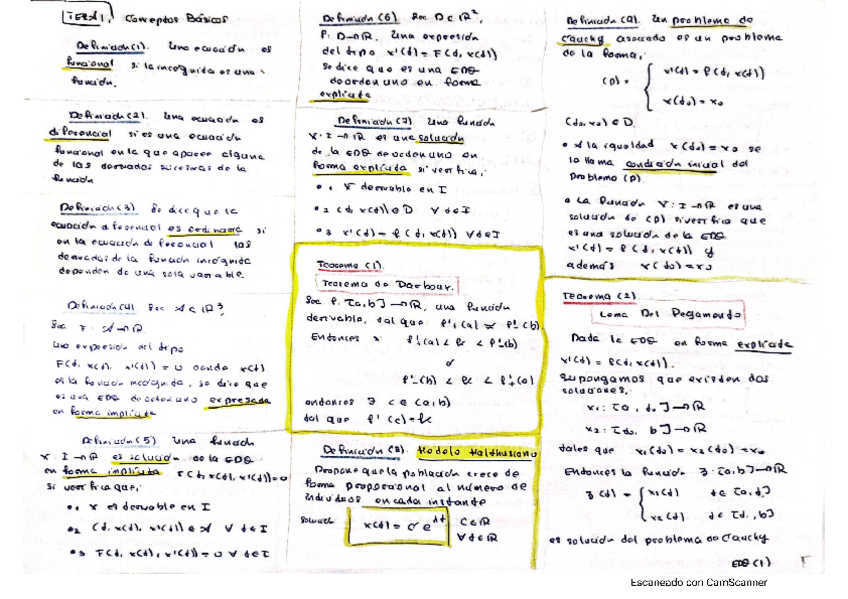 TEMA 1. Conceptos Básicos
Definición (1). Una ecuación es
funcional si la incógnita es una
función.
Definición (2). Una ecuación es
diferencial si es una ecuación
funcional en la que aparece alguna
de las derivadas sucesivas de la
función
Definición (3) Se dice que la
ecuación diferencial es ordinaria si
en la ecuación diferencial las
derivadas de la función incógnita
dependen de una sola variable.
Definición (4) Sea A ⊂ ℝ³,
Sea F: A → ℝ
Una expresión del tipo
F(t, x(t), x'(t)) = 0 donde x(t)
es la función incógnita, se dice que
es una EDO de orden uno expresada
en forma implícita
Definición (5) Una función
x: I → ℝ es solución de la EDO
en forma implícita F(t, x(t), x'(t)) = 0
si verifica que,
•1 x es derivable en I
•2 (t, x(t), x'(t)) ∈ A ∀ t ∈ I
•3 F(t, x(t), x'(t)) = 0 ∀ t ∈ I
Definición (6) Sea D ⊂ ℝ²,
f: D → ℝ. Una expresión
del tipo x'(t) = f(t, x(t))
se dice que es una EDO
de orden uno en forma
explícita
Definición (7) Una función
x: I → ℝ es una solución
de la EDO de orden uno en
forma explícita si verifica,
•1 x derivable en I
•2 (t, x(t)) ∈ D ∀ t ∈ I
•3 x'(t) = f(t, x(t)) ∀ t ∈ I
Teorema (1).
Teorema de Darboux.
Sea f: [a, b] → ℝ, una función
derivable, tal que f'+(a) ≠ f'-(b).
Entonces si f'+(a) < k < f'-(b)
o
f'-(b) < k < f'+(a)
entonces ∃ c ∈ (a, b)
tal que f'(c) = k
Definición (8). Modelo Malthusiano
Propone que la población crece de
forma proporcional al número de
individuos en cada instante
Solución x(t) = c e^{λt} c ∈ ℝ
∀ t ∈ ℝ
Definición (9). Un problema de
Cauchy asociado es un problema
de la forma,
(P) = { x'(t) = f(t, x(t))
x(t₀) = x₀
(t₀, x₀) ∈ D.
• A la igualdad x(t₀) = x₀ se
le llama condición inicial del
problema (P)
• La función x: I → ℝ es una
solución de (P) si verifica que
es una solución de la EDO
x'(t) = f(t, x(t)) y
además x(t₀) = x₀
Teorema (2).
Lema Del Pegamento
Dada la EDO en forma explícita
x'(t) = f(t, x(t)).
Supongamos que existen dos
soluciones,
x₁: [a, t₀] → ℝ
x₂: [t₀, b] → ℝ
tales que x₁(t₀) = x₂(t₀) = x₀
Entonces la función z: [a, b] → ℝ
z(t) = { x₁(t) t ∈ [a, t₀]
x₂(t) t ∈ [t₀, b]
es solución del problema de Cauchy
EDO (1)
Escaneado con CamScanner